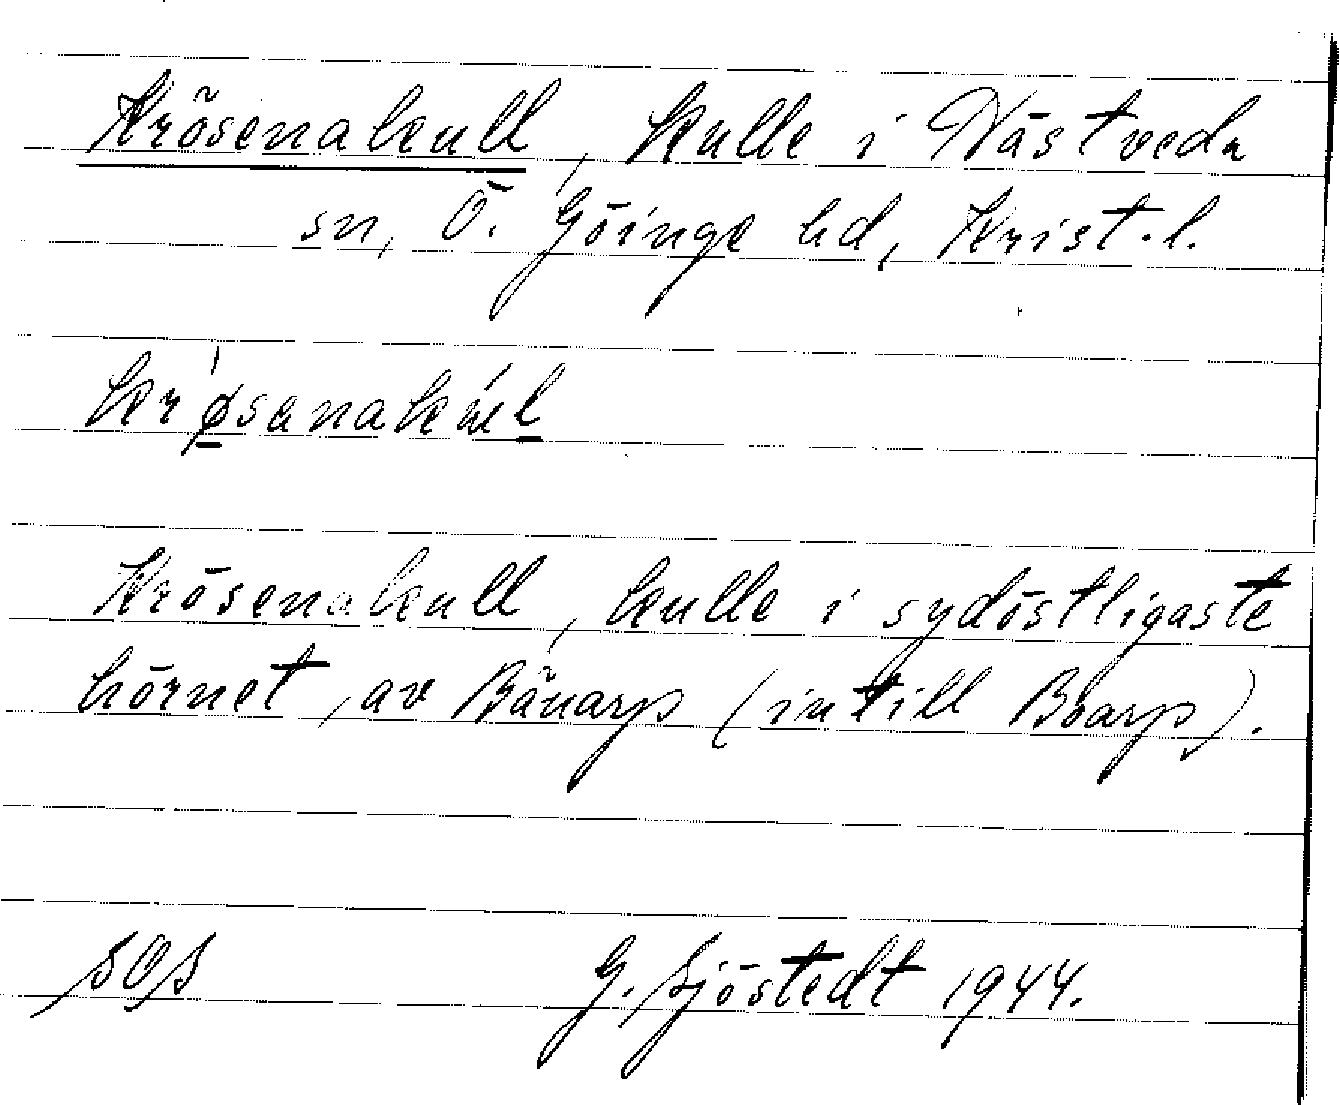 Krösenakull, kulle i Nästveda
sn, Ö. Göinge hd, Krist.l.
krø̱sanakúḻ
Krösenakull, kulle i sydöstligaste
hörnet av Bänarp (intill Boarp).
SOS G. Sjöstedt 1944.